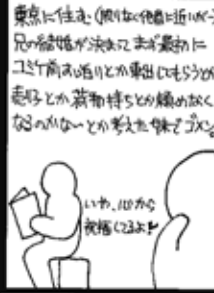 東京に住む(限りなく他県に近いが…)
兄の結婚が決まってまず最初に
コミケ前お泊りとか車出してもらうとか
売り子とか荷物持ちとか頼めなく
なるのかな〜とか考えた妹でゴメン。
いや、心から
祝福してるよ!